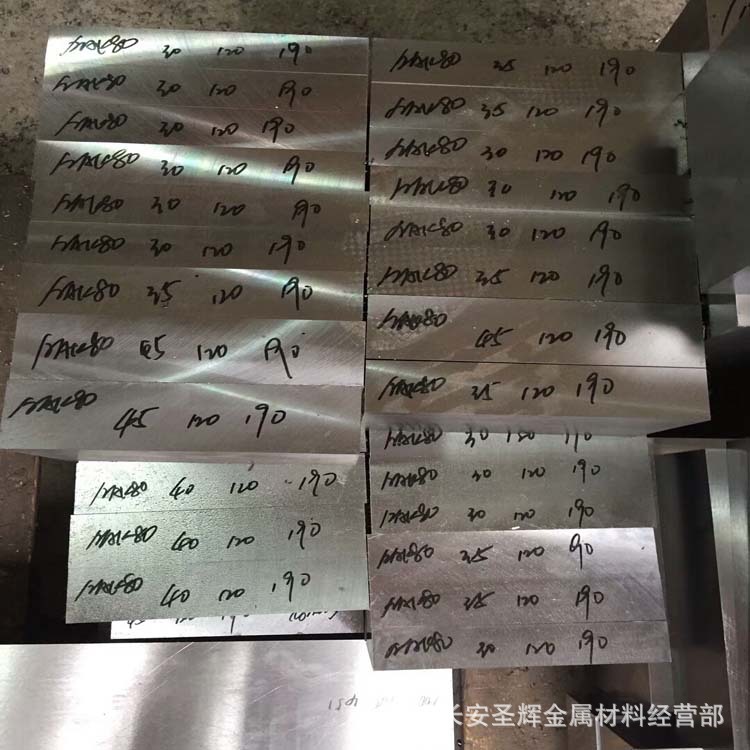 NAK80 30 120 190
NAK80 30 120 190
NAK80 30 120 190
NAK80 30 120 190
NAK80 30 120 190
NAK80 30 120 190
NAK80 35 120 190
NAK80 45 120 190
NAK80 45 120 190
NAK80 40 120 190
NAK80 40 120 190
NAK80 40 120 190
NAK80 35 120 190
NAK80 35 120 190
NAK80 30 120 190
NAK80 30 120 190
NAK80 30 120 190
NAK80 35 120 190
NAK80 45 120 190
NAK80 35 120 190
NAK80 30 120 190
NAK80 30 120 190
NAK80 30 120 190
NAK80 35 120 190
NAK80 35 120 190
NAK80 30 120 190
长安圣辉金属材料经营部